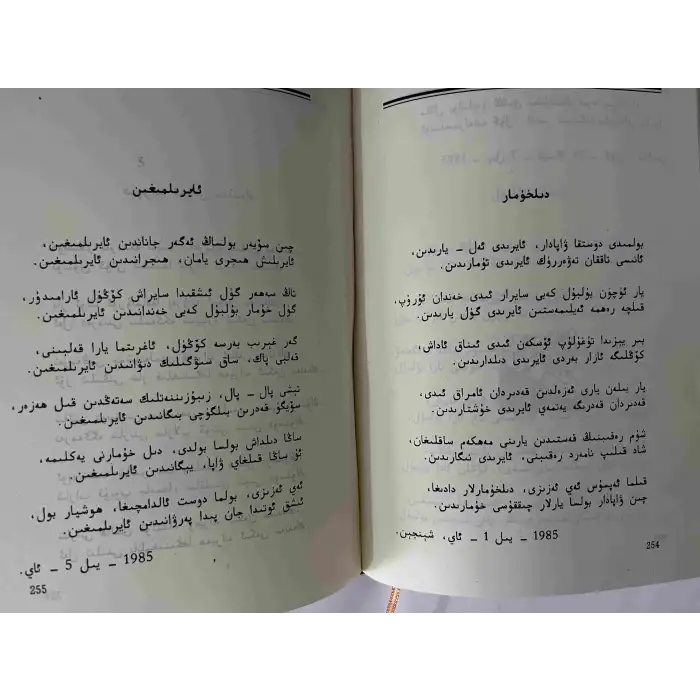 دىلخۇمار
بولمىدى دوستقا ۋاپادار، ئايرىدى ئەل ـ يارىدىن،
ئانىسى تاققان تەۋەررۈك ئايرىدى تۇمارىدىن.
يار ئۈچۈن بۇلبۇل كەبى سايرار ئىدى خەندان ئۇرۇپ،
قىلچە رەھمە ئەيلىمەستىن ئايرىدى گۈل يارىدىن.
بىر يېزىدا تۇغۇلۇپ ئۆسكەن ئىدى ئىناق ئاداش،
كۆڭلىگە ئازار بەردى ئايرىدى دىلدارىدىن.
يار بىلەن يارى ئەزەلدىن قەدىردان ئامراق ئىدى،
قەدىردان قەدىرگە يەتمەي ئايرىدى خۇشتارىدىن.
شۇم رەقىبنىڭ قەستىدىن يارىنى مەھكەم ساقلىغان،
شاد قىلىپ نامەرد رەقىبنى، ئايرىدى نىگارىدىن.
قىلما ئەپسۇس ئەي ئەزىزى، دىلخۇمارلار دادىغا،
چىن ۋاپادار بولسا يارلار چىققۇسى خۇمارىدىن.
1985 ـ يىل 1 ـ ئاي، شېنجېن.
254
ئايرىلمىغىن
چىن سۆيەر بولساڭ ئەگەر جاناندىن ئايرىلمىغىن،
ئايرىلىش ھىجرى يامان، ھىجرانىدىن ئايرىلمىغىن.
تاڭ سەھەر گۈل ئىشقىدا سايراش كۆڭۈل ئارامىدۇر،
گۈل خۇمار بۇلبۇل كەبى خەندانىدىن ئايرىلمىغىن.
گەر غېرىب بەرسە كۆڭۈل، ئاغرىتما يارا قەلبىنى،
قەلبى پاك، ساق سۆيگىنىڭ دىۋانىدىن ئايرىلمىغىن.
تېشى پال ـ پال، زىبۇزىننەتلىك سەتەڭدىن قىل ھەزەر،
سۆيگۈ قەدرىن بىلگۈچى بىگانىدىن ئايرىلمىغىن.
ساڭا دىلداش بولسا بولدى، دىل خۇمارنى يەكلىمە،
ئۇ ساڭا قىلغاي ۋاپا، يېگانىدىن ئايرىلمىغىن.
ئەي ئەزىزى، بولما دوست ئالدامچىغا، ھوشيار بول،
ئىشق ئوتىدا جان پىدا پەرۋانىدىن ئايرىلمىغىن.
1985 ـ يىل 5 ـ ئاي.
255